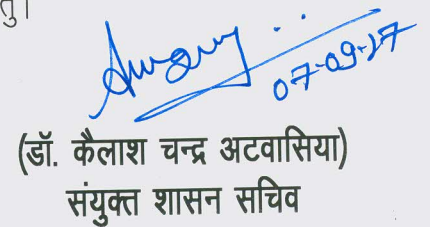 तु।
07-09-27
(डॉ. कैलाश चन्द्र अटवासिया)
संयुक्त शासन सचिव